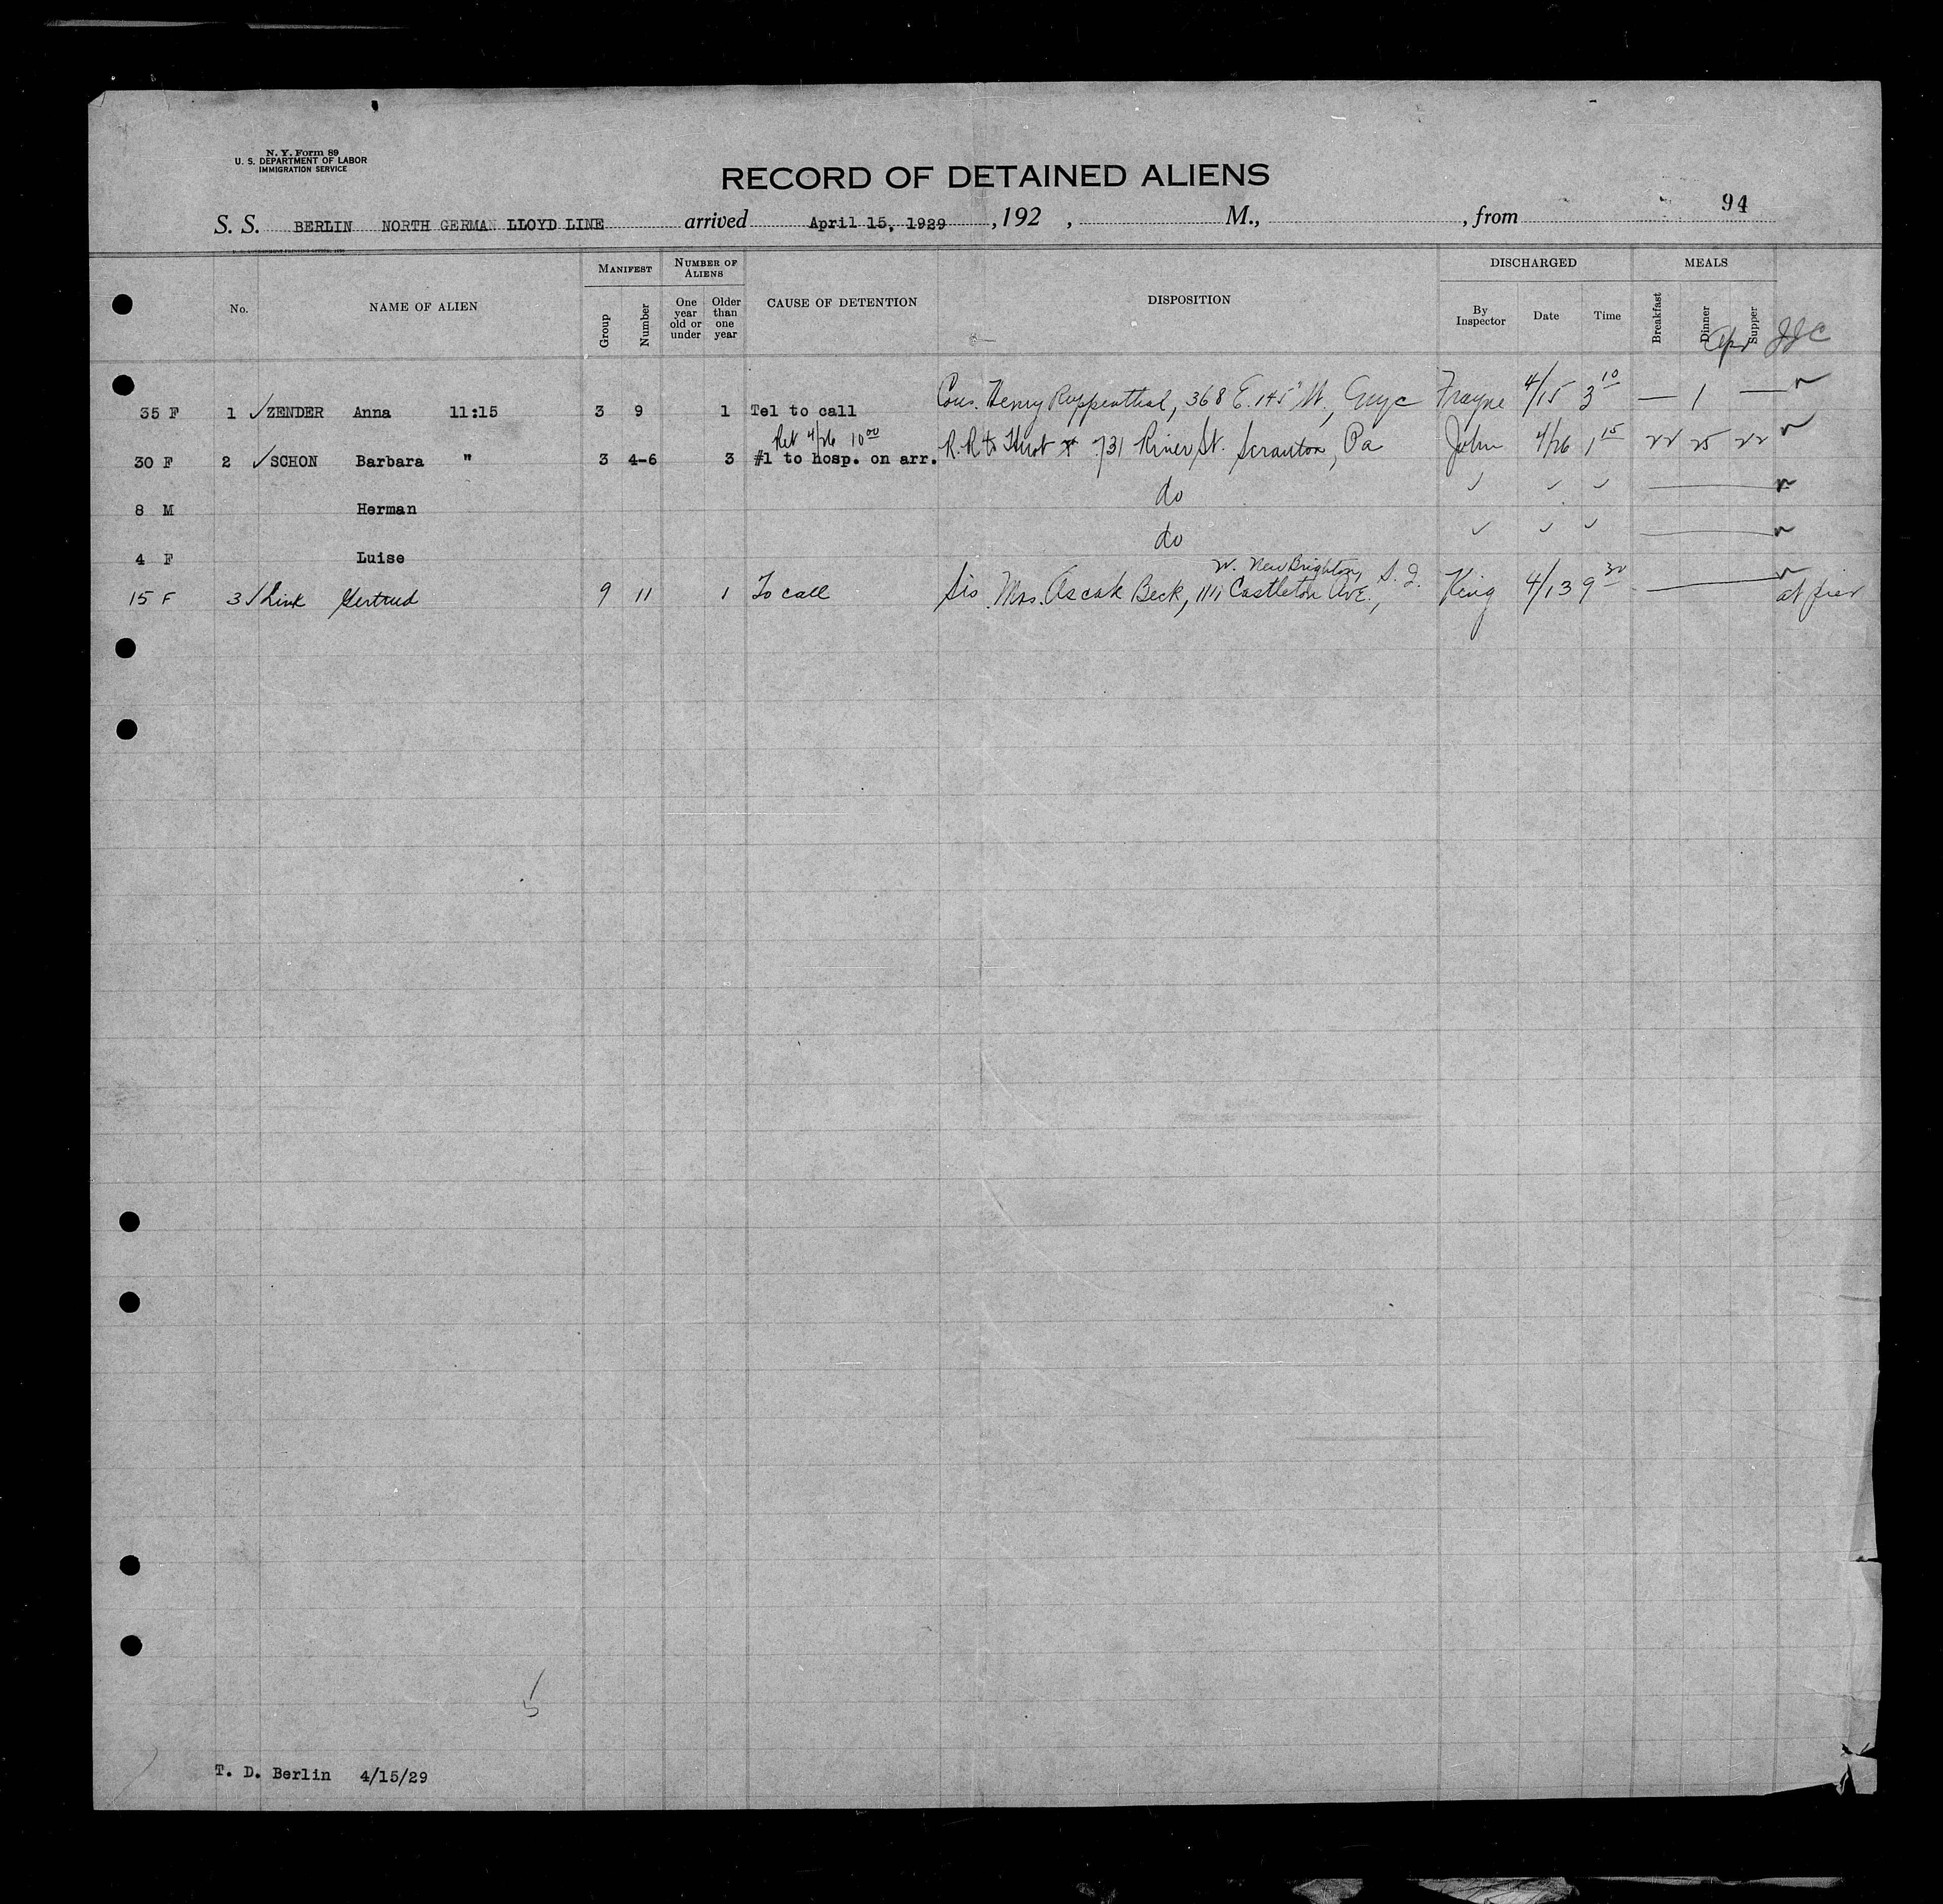 N. Y. Form 89
U. S. DEPARTMENT OF LABOR
IMMIGRATION SERVICE
RECORD OF DETAINED ALIENS
94
S. S. BERLIN NORTH GERMAN LLOYD LINE arrived April 15, 1929, 192 , M., , from
No. NAME OF ALIEN MANIFEST Group Number NUMBER OF ALIENS One year old or under Older than one year CAUSE OF DETENTION DISPOSITION DISCHARGED By Inspector Date Time MEALS Breakfast Dinner Supper
JJC
35 F 1 ✓ ZENDER Anna 11:15 3 9 1 Tel to call Cous. Henry Ruppenthal, 368 E. 145" St., Frayne 4/15 3 10 — 1 —
Ret 4/26 10 00
30 F 2 ✓ SCHON Barbara " 3 4-6 3 #1 to hosp. on arr. R.R to 731 River St. Scranton, Pa John 4/26 1 15 22 25 22
8 M Herman do ✓ ✓ ✓
4 F Luise do ✓ ✓ ✓
W. New Brighton, S. I.
15 F 3 ✓ Link Gertrud 9 11 1 To call Sis Mrs. Oscar Beck, 1111 Castleton Ave., King 4/13 9 30 at pier
5
T. D. Berlin 4/15/29